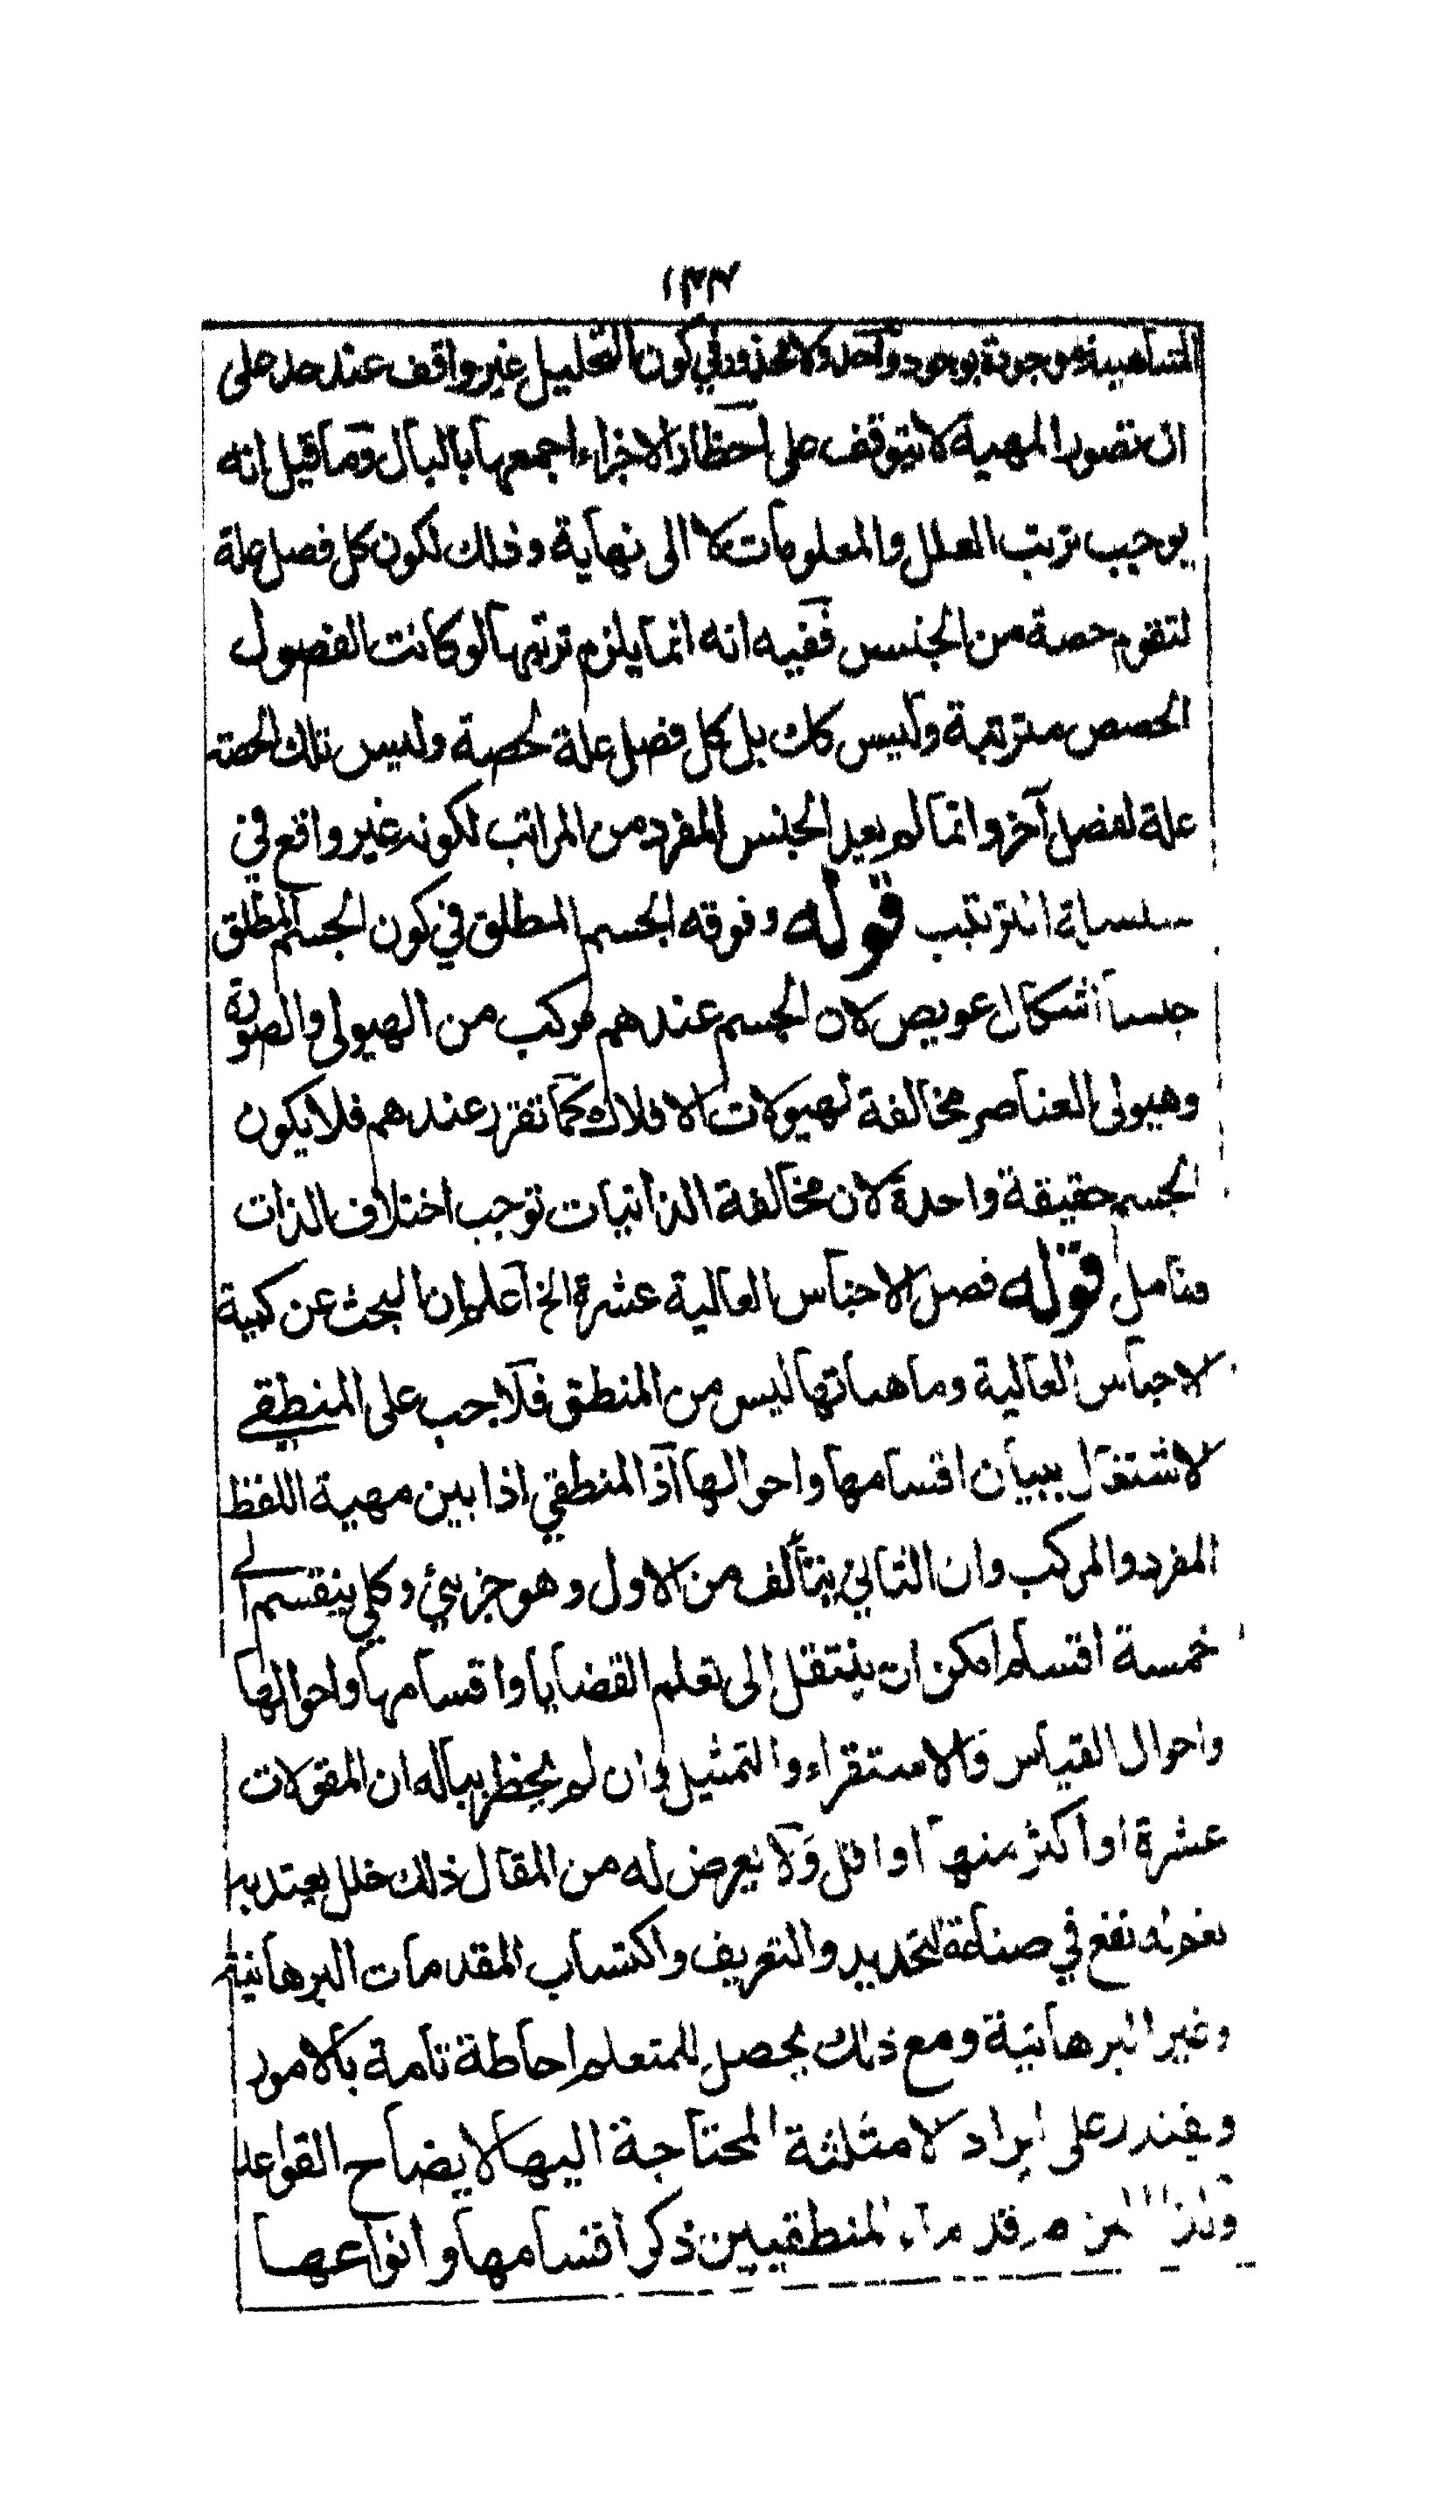 ١٣٣
المتناهية موجودة بوجود واحد ولا محذور في كون التحليل غير واقف عند حد على
ان تصور المهية لا يتوقف على احظار الاجزاء اجمعها بالبال وما قيل انه
يوجب ترتب العلل والمعلومات لا الى نهاية وذلك لكون كل فصل علة
لتقوم حصة من الجنس ففيه انه انما يلزم ترتبها لو كانت الفصول
الحصص مترتبة وليس كك بل كل فصل علة لحصة وليس تلك الحصة
علة لفصل آخر وانما لم يعد الجنس المفرد من المراتب لكونه غير واقع في
سلسلة الترتب قوله وفوقه الجسم المطلق في كون الجسم المطلق
جنسا اشكال عويص لان الجسم عندهم مركب من الهيولى والصورة
وهيولى العناصر مخالفة لهيولات الافلاك كما تقرر عندهم فلا يكون
الجسم حقيقة واحدة لان مخالفة الذاتيات توجب اختلاف الذات
فتامل قوله فصل الاجناس العالية عشرة الخ اعلم ان البحث عن كمية
الاجناس العالية وماهياتها ليس من المنطق فلا يجب على المنطقي
الاشتغال ببيان اقسامها واحوالها اذ المنطقي اذا بين مهية اللفظ
المفرد والمركب وان الثاني يتألف من الاول وهو جزئي وكلي ينقسم الى
خمسة اقسام امكن ان ينتقل الى تعلم القضايا واقسامها واحوالها
واحوال القياس والاستقراء والتمثيل وان لم يخطر بباله ان المقولات
عشرة او اكثر منها او اقل ولا يعرض له من المقال ذلك خلل يعتد به
نعم له نفع في صناعة التحديد والتعريف واكتساب المقدمات البرهانية
وغير البرهانية ومع ذلك يحصل للمتعلم احاطة تامة بالامور
ويقتدر على ايراد الامثلة المحتاجة اليها لايضاح القواعد
ولذا قدماء المنطقيين ذكر اقسامها وانواعها